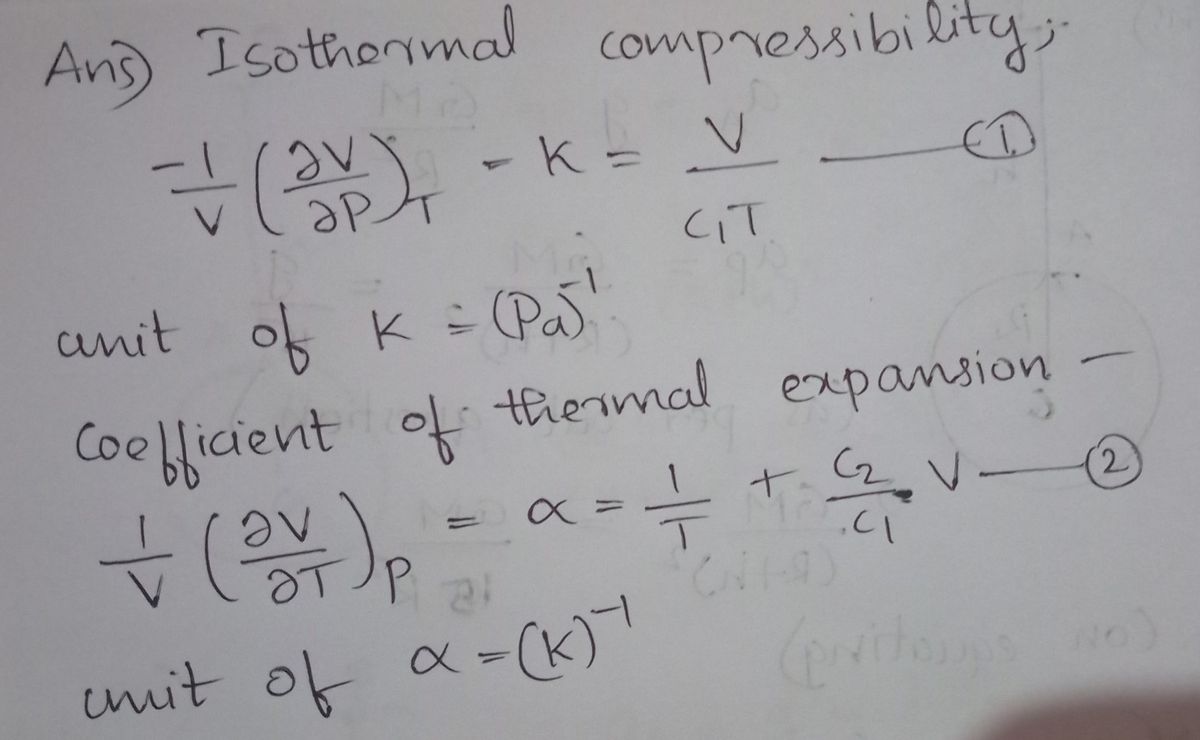 Ans) Isothermal compressibility;-
-1/V (∂V/∂P)_T - K = V/C₁T —— ①
unit of K = (Pa)⁻¹
Coefficient of thermal expansion -
1/V (∂V/∂T)_P = α = 1/T + C₂/C₁ V —— ②
unit of α = (K)⁻¹